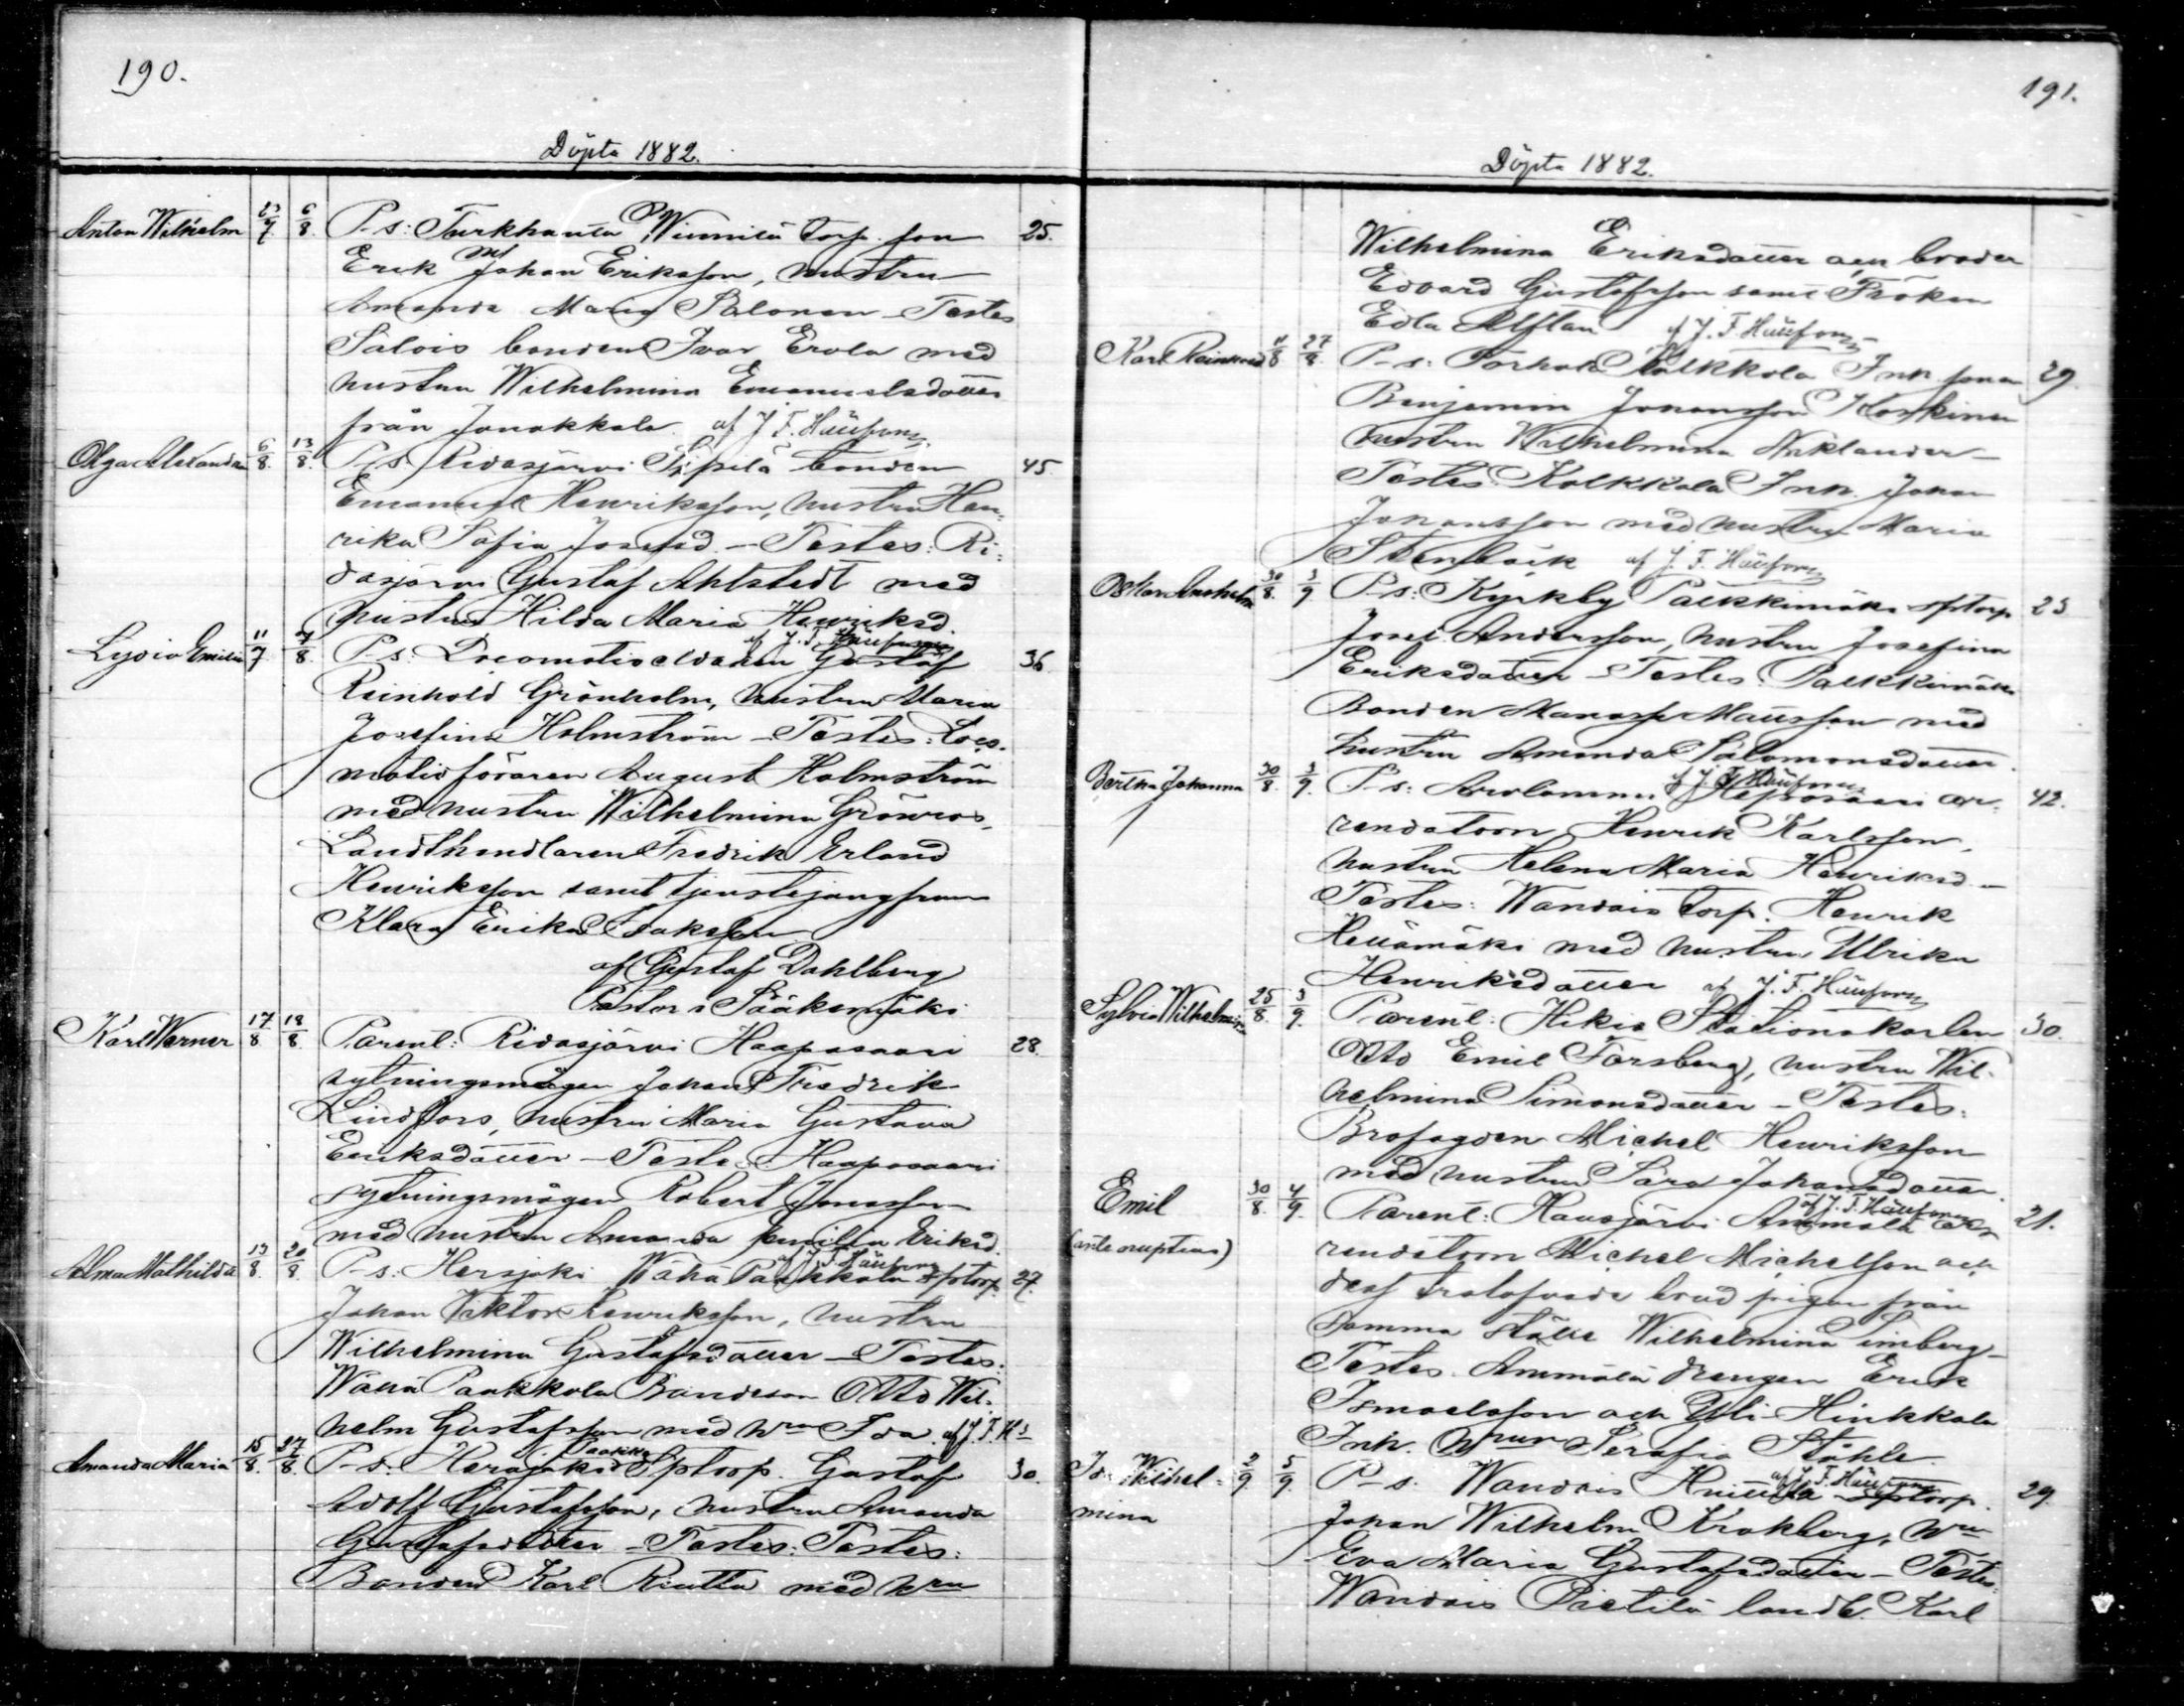 190.
Döpta 1882.
Anton Wilhelm 23/7 6/8 P-s: Turkhauta Winnilä torp. son 25.
Erik Johan Eriksson, hustru
Amanda Maria Salonen – Testes
Salois bonden Ivar Erola med
hustru Wilhelmina Emanuelsdotter
från Janakkala. af J. F.
Olga Alexandra 6/8 13/8 P-s. Ridasjärvi Sipilä bonden 45.
Emanuel Henriksson, hustru Hen-
rika Sofia Josefsd. – Testes: Ri-
dasjärvi Gustaf Ahlstedt med
hustru Hilda Maria Henriksd.
af J. F.
Lydia Emilia 11/7 7/8 P-s: Gustaf 36.
Reinhold Grönholm, hustru Maria
Josefina Holmström – Testes: Loco-
motivföraren August Holmström
med hustru Wilhelmina Grönroos,
Landthandlaren Fredrik Erland
Henriksson samt tjenstejungfrun
Klara Erika Isaksson
af Gustaf Dahlberg
Pastor i Sääksmäki
Karl Werner 17/8 18/8 Parent: Ridasjärvi Haaposaari 28.
sytningsmågen Johan Fredrik
Lindfors, hustru Maria Gustava
Eriksdotter – Testes: Haaposaari
sytningsmågen Robert Jonasson
med hustru Amanda Emilia Eriksd.
af J. F.
Alma Mathilda 13/8 20/8 P-s: Herajoki Wähä Paakkola sptorp. 27.
Johan Viktor Henriksson, hustru
Wilhelmina Gustafsdotter – Testes:
Wähä Paakkola Bondeson Otto Wil-
helm Gustafsson med hru Ida. af J. F. H
Amanda Maria 15/8 27/8 P-s: Herajoki Paakkola Sptorp. Gustaf 30.
Adolf Gustafsson, hustru Amanda
Gustafsdotter – Testes: Testes:
Bonden Karl Riutta med hru
191.
Döpta 1882.
Wilhelmina Eriksdotter och broder
Edvard Gustafsson samt Fröken
Edla Alftan af J. F.
Karl Reinhold 11/8 27/8 P-s: Torhola Kolkkola Inh. sonen 29.
Benjamin Johansson Koskinen
hustru Wilhelmina Niklander –
Testes: Kolkkola Inh. Johan
Johansson med hustru Maria
Stenbäck af J. F.
Oskar Anshelm 30/8 3/9 P-s: Kyrkby Palkkimäki sptorp 23
Josef Andersson, hustru Josefina
Eriksdotter – Testes: Palkkimäki
Bonden Manasse Mattsson med
hustru Amanda Salomonsdotter.
af J. F.
Bertha Johanna 30/8 3/9 P-s: Arolammi ar- 42.
rendatorn Henrik Karlsson,
hustru Helena Maria Henriksd. –
Testes: Wandais torp. Henrik
med hustru Ulrika
Henriksdotter af J. F.
Sylvia Wilhelmina 25/8 3/9 Parent: Hikiä Stationskarlen 30.
Otto Emil Forsberg, hustru Wil-
helmina Simonsdotter – Testes:
Brofogden Michel Henriksson
med hustru Sara Johansdotter.
af J. F.
Emil 30/8 4/9 Parent: Hausjärvi Ammälä ar- 21.
(ante nuptias)
rendatorn Michel Michelsson och
dess trolofvade brud pigan från
samma ställe Wilhelmina Limberg –
Testes. Ammälä Drengen Erik
Ismaelsson och Yli-Hinkkala
Inh. Serafia Ståhle.
af J. F.
Ida Wilhel- 2/9 5/9 P-s. Wandais sptorp. 29.
mina
Johan Wilhelm Krokberg, hru
Eva Maria Gustafsdotter – Testes:
Wandais Pietilä landb. Karl